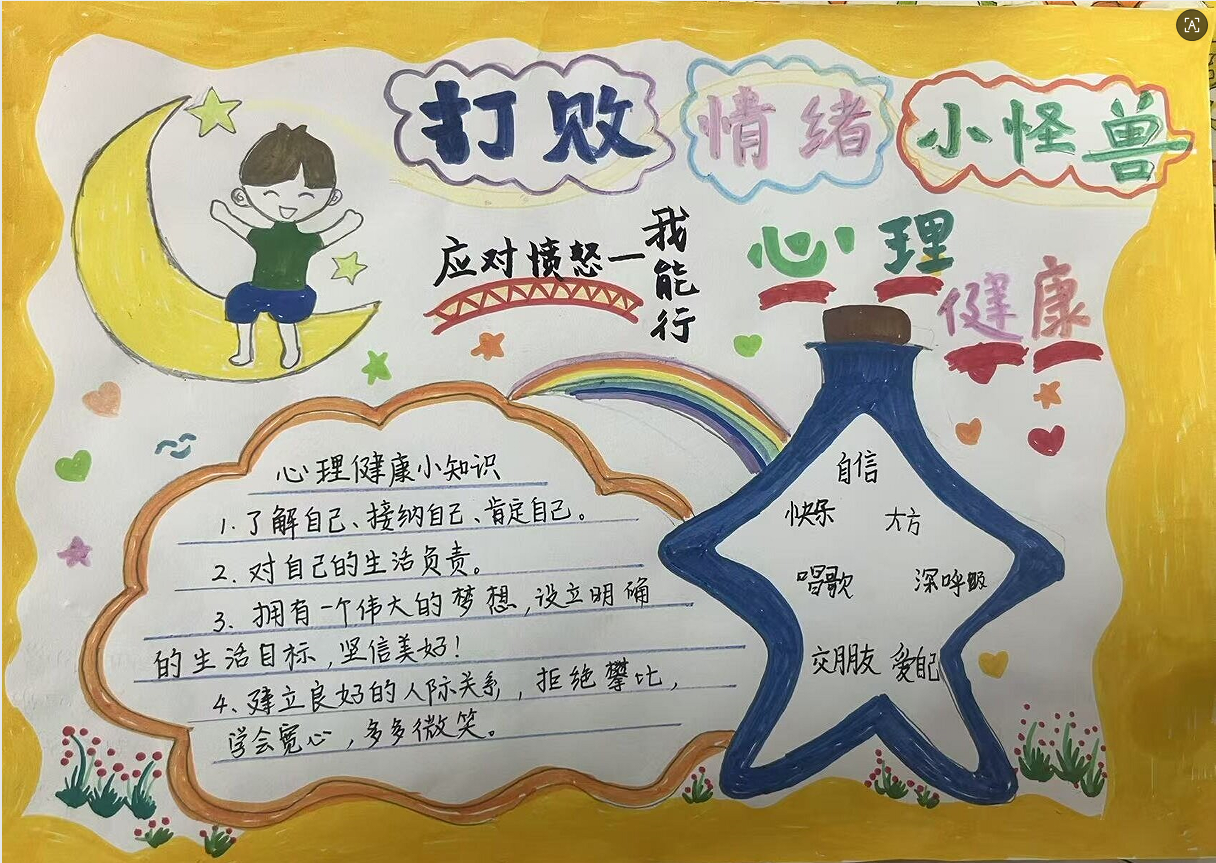 打败 情绪 小怪兽
应对愤怒一我能行
心理
健康
心理健康小知识
1.了解自己、接纳自己、肯定自己。
2.对自己的生活负责。
3.拥有一个伟大的梦想,设立明确
的生活目标,坚信美好!
4.建立良好的人际关系,拒绝攀比,
学会宽心,多多微笑。
自信
快乐 大方
唱歌 深呼吸
交朋友 爱自己